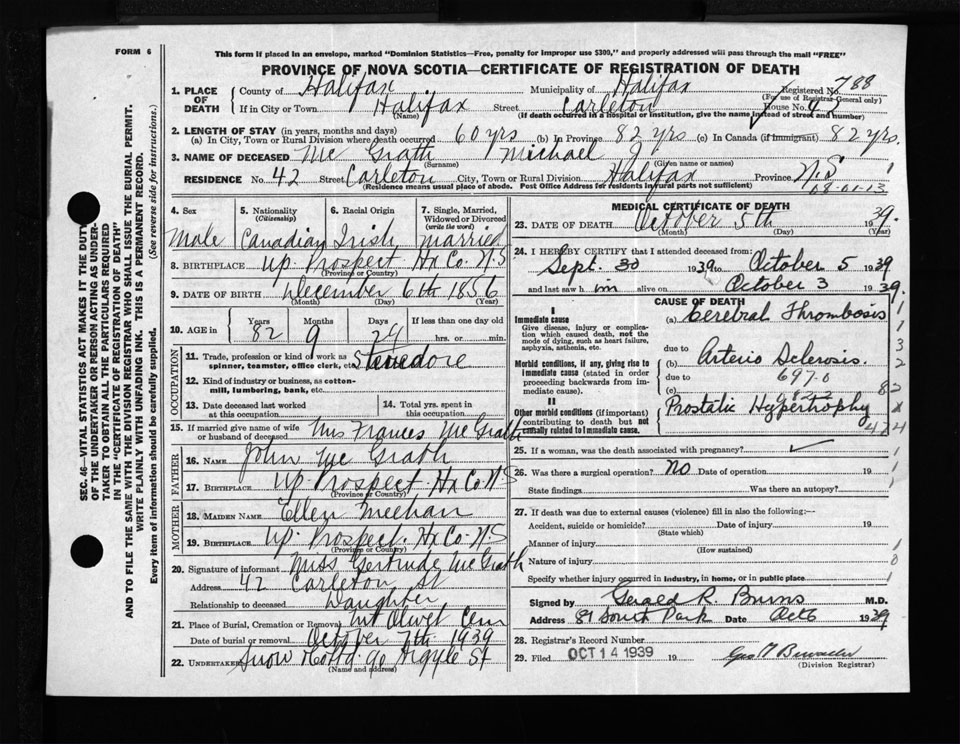 FORM 6
This form if placed in an envelope, marked "Dominion Statistics—Free, penalty for improper use $300," and properly addressed will pass through the mail "FREE"
PROVINCE OF NOVA SCOTIA—CERTIFICATE OF REGISTRATION OF DEATH
1. PLACE OF DEATH County of Halifax Municipality of Halifax Registered No. 788
(For use of Registrar-General only)
If in City or Town Halifax Street Carleton House No. 4
(Name) (If death occurred in a hospital or institution, give the name instead of street and number)
2. LENGTH OF STAY (in years, months and days)
(a) In City, Town or Rural Division where death occurred 60 yrs (b) In Province 82 yrs (c) In Canada (if immigrant) 82 yrs.
3. NAME OF DECEASED Mc Grath Michael J
(Surname) (Given name or names)
RESIDENCE No. 42 Street Carleton City, Town or Rural Division Halifax Province N.S
(Residence means usual place of abode. Post Office Address for residents in rural parts not sufficient)
4. Sex 5. Nationality (Citizenship) 6. Racial Origin 7. Single, Married, Widowed or Divorced (write the word)
Male Canadian Irish married
8. BIRTHPLACE Up. Prospect Hx Co. N.S
(Province or Country)
9. DATE OF BIRTH December 6th 1856
(Month) (Day) (Year)
10. AGE in Years Months Days If less than one day old
82 9 24 hrs. or min.
OCCUPATION
11. Trade, profession or kind of work as spinner, teamster, office clerk, etc. Stevedore
12. Kind of industry or business, as cotton-mill, lumbering, bank, etc.
13. Date deceased last worked at this occupation 14. Total yrs. spent in this occupation
15. If married give name of wife or husband of deceased Mrs Frances Mc Grath
FATHER
16. Name John Mc Grath
17. Birthplace Up Prospect Hx Co N.S
(Province or Country)
MOTHER
18. Maiden Name Ellen Meehan
19. Birthplace Up. Prospect. Hx Co. N.S
(Province or Country)
20. Signature of informant Miss Gertrude Mc Grath
Address 42 Carleton St
Relationship to deceased Daughter
21. Place of Burial, Cremation or Removal Mt Olivet Cem
Date of burial or removal October 7th 1939
22. Undertaker Snow Co Ltd 90 Argyle St
(Name and address)
MEDICAL CERTIFICATE OF DEATH
23. DATE OF DEATH October 5th 1939.
(Month) (Day) (Year)
24. I HEREBY CERTIFY that I attended deceased from:
Sept. 30 1939 to October 5 1939
and last saw h im on October 3 1939.
CAUSE OF DEATH
I
Immediate cause (a) Cerebral Thrombosis
Give disease, injury or complication which caused death, not the mode of dying, such as heart failure, asphyxia, asthenia, etc.
due to
Morbid conditions, if any, giving rise to immediate cause (stated in order proceeding backwards from immediate).
(b) Arterio Sclerosis.
due to 697.0
(c)
II
Other morbid conditions (if important) contributing to death but not causally related to immediate cause.
Prostatic Hypertrophy
25. If a woman, was the death associated with pregnancy?
26. Was there a surgical operation? No Date of operation 19
State findings Was there an autopsy?
27. If death was due to external causes (violence) fill in also the following:—
Accident, suicide or homicide? Date of injury 19
(State which)
Manner of injury
(How sustained)
Nature of injury
Specify whether injury occurred in industry, in home, or in public place
Signed by Gerald R. Burns M.D.
Address 81 South Park Date Oct 6 1939
28. Registrar's Record Number
29. Filed OCT 14 1939 19
(Division Registrar)
SEC. 46—VITAL STATISTICS ACT MAKES IT THE DUTY
OF THE UNDERTAKER OR PERSON ACTING AS UNDER-
TAKER TO OBTAIN ALL THE PARTICULARS REQUIRED
IN THE "CERTIFICATE OF REGISTRATION OF DEATH"
AND TO FILE THE SAME WITH THE DIVISION REGISTRAR WHO SHALL ISSUE THE BURIAL PERMIT.
WRITE PLAINLY WITH UNFADING INK. THIS IS A PERMANENT RECORD.
Every item of information should be carefully supplied. (See reverse side for instructions.)